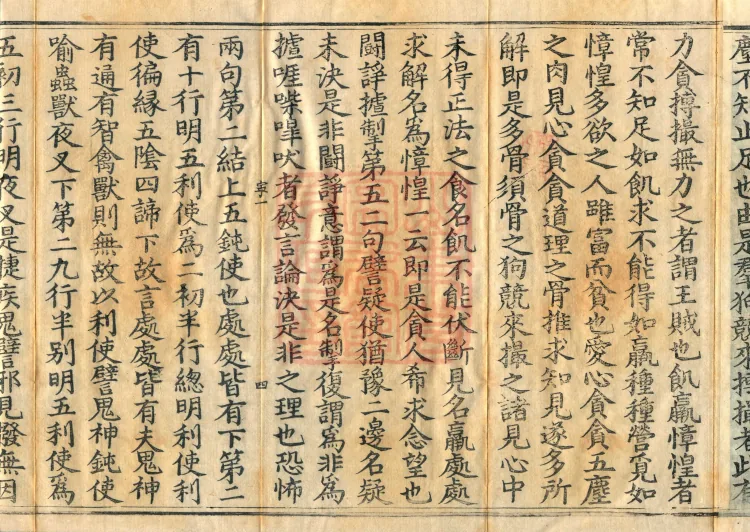 塵不知止足也由是羣狗競來搏撮者此有
力貪摶撮無力之者謂王賊也飢羸慞惶者
常不知足如飢求不能得如羸種種營覓如
慞惶多欲之人雖富而貧也愛心貪貪五塵
之肉見心貪貪道理之骨推求知見遂多所
解即是多骨須骨之狗競來撮之諸見心中
未得正法之食名飢不能伏斷見名羸處處
求解名爲慞惶一云即是貪人希求念望也
鬪諍摣掣第五二句譬疑使猶豫二邊名疑
未決是非鬪諍意謂爲是名掣復謂爲非爲
摣啀喍嘷吠者發言論決是非之理也恐怖
四
兩句第二結上五鈍使也處處皆有下第二
有十行明五利使爲二初半行總明利使利
使徧緣五陰四諦下故言處處皆有夫鬼神
有通有智禽獸則無故以利使譬鬼神鈍使
喻蟲獸夜叉下第二九行半别明五利使爲
五初三行明夜叉是捷疾鬼譬邪見撥無因